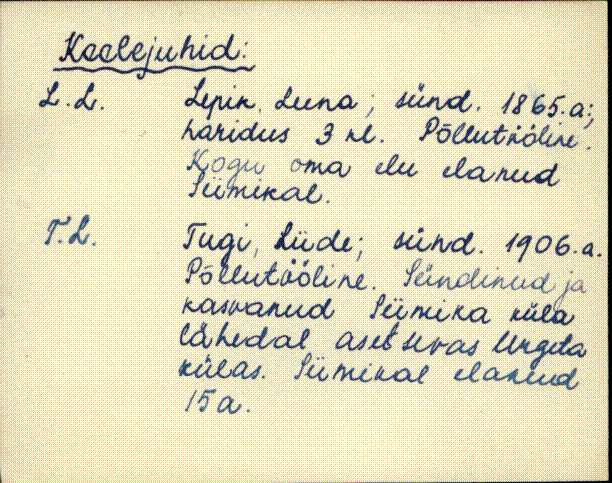 Keelejuhid:
L.L. Lepik, Leena; sünd. 1865.a.;
haridus 3 kl. Põllutööline.
Kogu oma elu elanud
Siimikal.
T.L. Tugi, Liide; sünd. 1906.a.
Põllutööline. Sündinud ja
kasvanud Siimika küla
lähedal asetsevas Urgeta
külas. Siimikal elanud
15a.